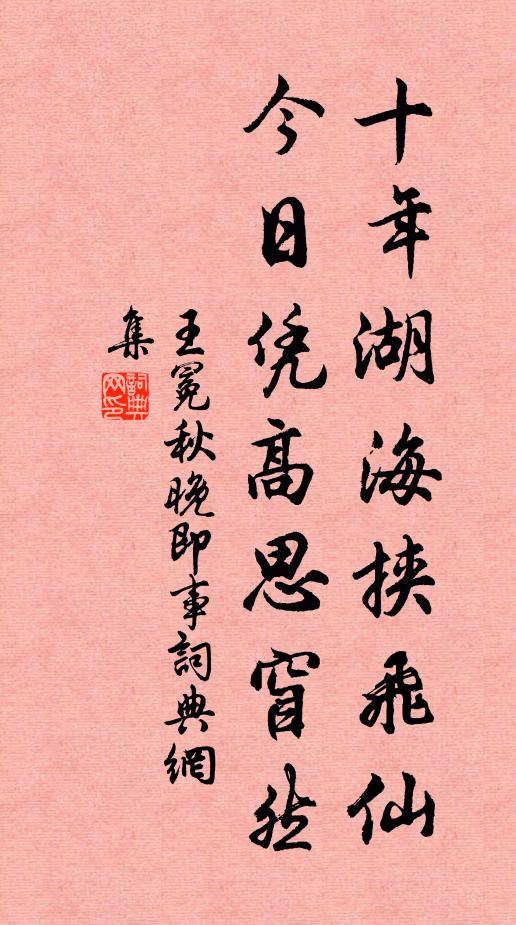 十年湖海挟飛仙
今日凭高思窅然
王冕秋晚即事詞典網
集
詞典
网印